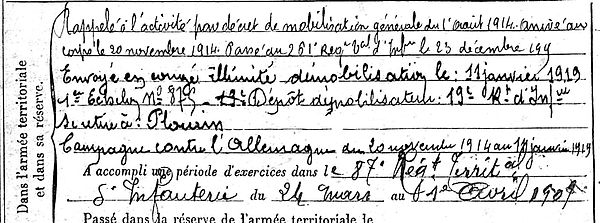 Rappelé à l'activité par décret de mobilisation générale du 1er Août 1914. Arrivé au
corps le 20 novembre 1914. Passé au 261e Regt d'Infie le 23 décembre 191
Envoyé en congé illimité démobilisation le: 11 janvier 1919
1er Echelon No 875 - 19e Dépôt démobilisateur: 19e Rt d'Infrie
se retire à: Plousin
Campagne contre l'Allemagne du 20 novembre 1914 au janvier 1919
Dans l'armée territoriale
et dans sa réserve.
A accompli une période d'exercices dans le 87e Régt Territal
d'Infanterie du 24 mars au 1er Avril 1909
Passé dans la réserve de l'armée territoriale le